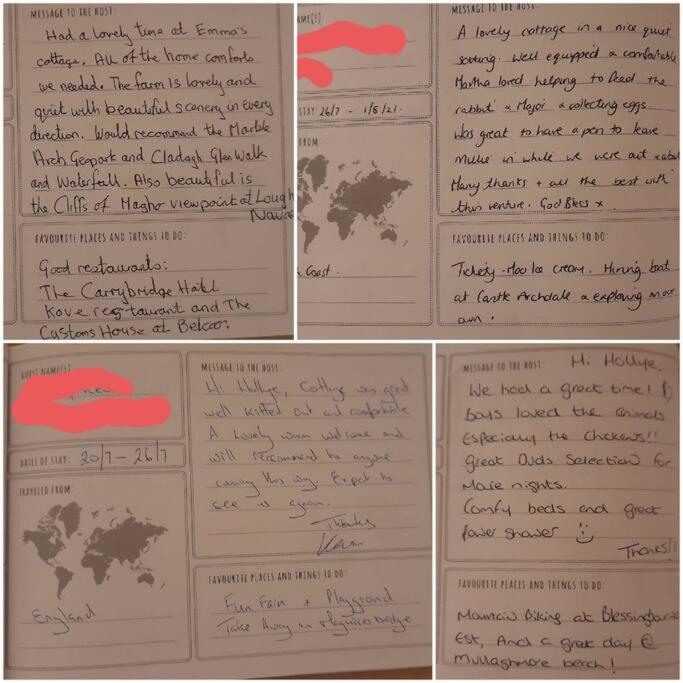 MESSAGE TO THE HOST:
Had a lovely time at Emma's
cottage. All of the home comforts
we needed. The farm is lovely and
quiet with beautiful scenery in every
direction. Would recommend the Marble
Arch Geopark and Cladagh Glen Walk
and Waterfall. Also beautiful is
the Cliffs of Magho viewpoint at Lough
Navar
FAVOURITE PLACES AND THINGS TO DO:
Good restaurants:
The Carrybridge Hotel
Kove restaurant and The
Customs House at Belcoo.
AME(S)
STAY: 26/7 - 1/8/21.
FROM
Coast.
MESSAGE TO THE HOST:
A lovely cottage in a nice quiet
setting. Well equipped & comfortable
Martha loved helping to feed the
rabbit & & collecting eggs.
Was great to have a pen to leave
in while we were out & about
Many thanks + all the best with
this venture. God Bless x
FAVOURITE PLACES AND THINGS TO DO:
Tickety-Moo Ice cream. Hiring boat
at Castle Archdale & exploring on our
own.
GUEST NAME(S)
DATES OF STAY: 20/7 - 26/7
TRAVELED FROM:
England
MESSAGE TO THE HOST:
Hi Hollye, Cottage was great
well kitted out and comfortable
A Lovely warm welcome and
will recommend to anyone
coming this way. Expect to
see us again.
Thanks
FAVOURITE PLACES AND THINGS TO DO:
Fun Fair + Playground
Take Away in Maguiresbridge
MESSAGE TO THE HOST:
Hi Hollye,
We had a great time!
boys loved the animals
Especially the Chickens!!
Great DVDs Selection for
Movie nights.
Comfy beds and great
Power shower
Thanks!!
FAVOURITE PLACES AND THINGS TO DO:
Mountain Biking at Blessingbourne
Est, And a great day @
Mullaghmore beach!